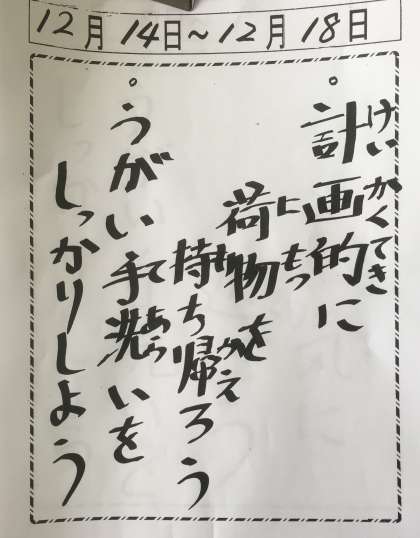 12月14日~12月18日
。計画的に
けいかくてき
荷物を
にもつ
持ち帰ろう
もかえ
。うがい手洗いを
てあら
しっかりしよう